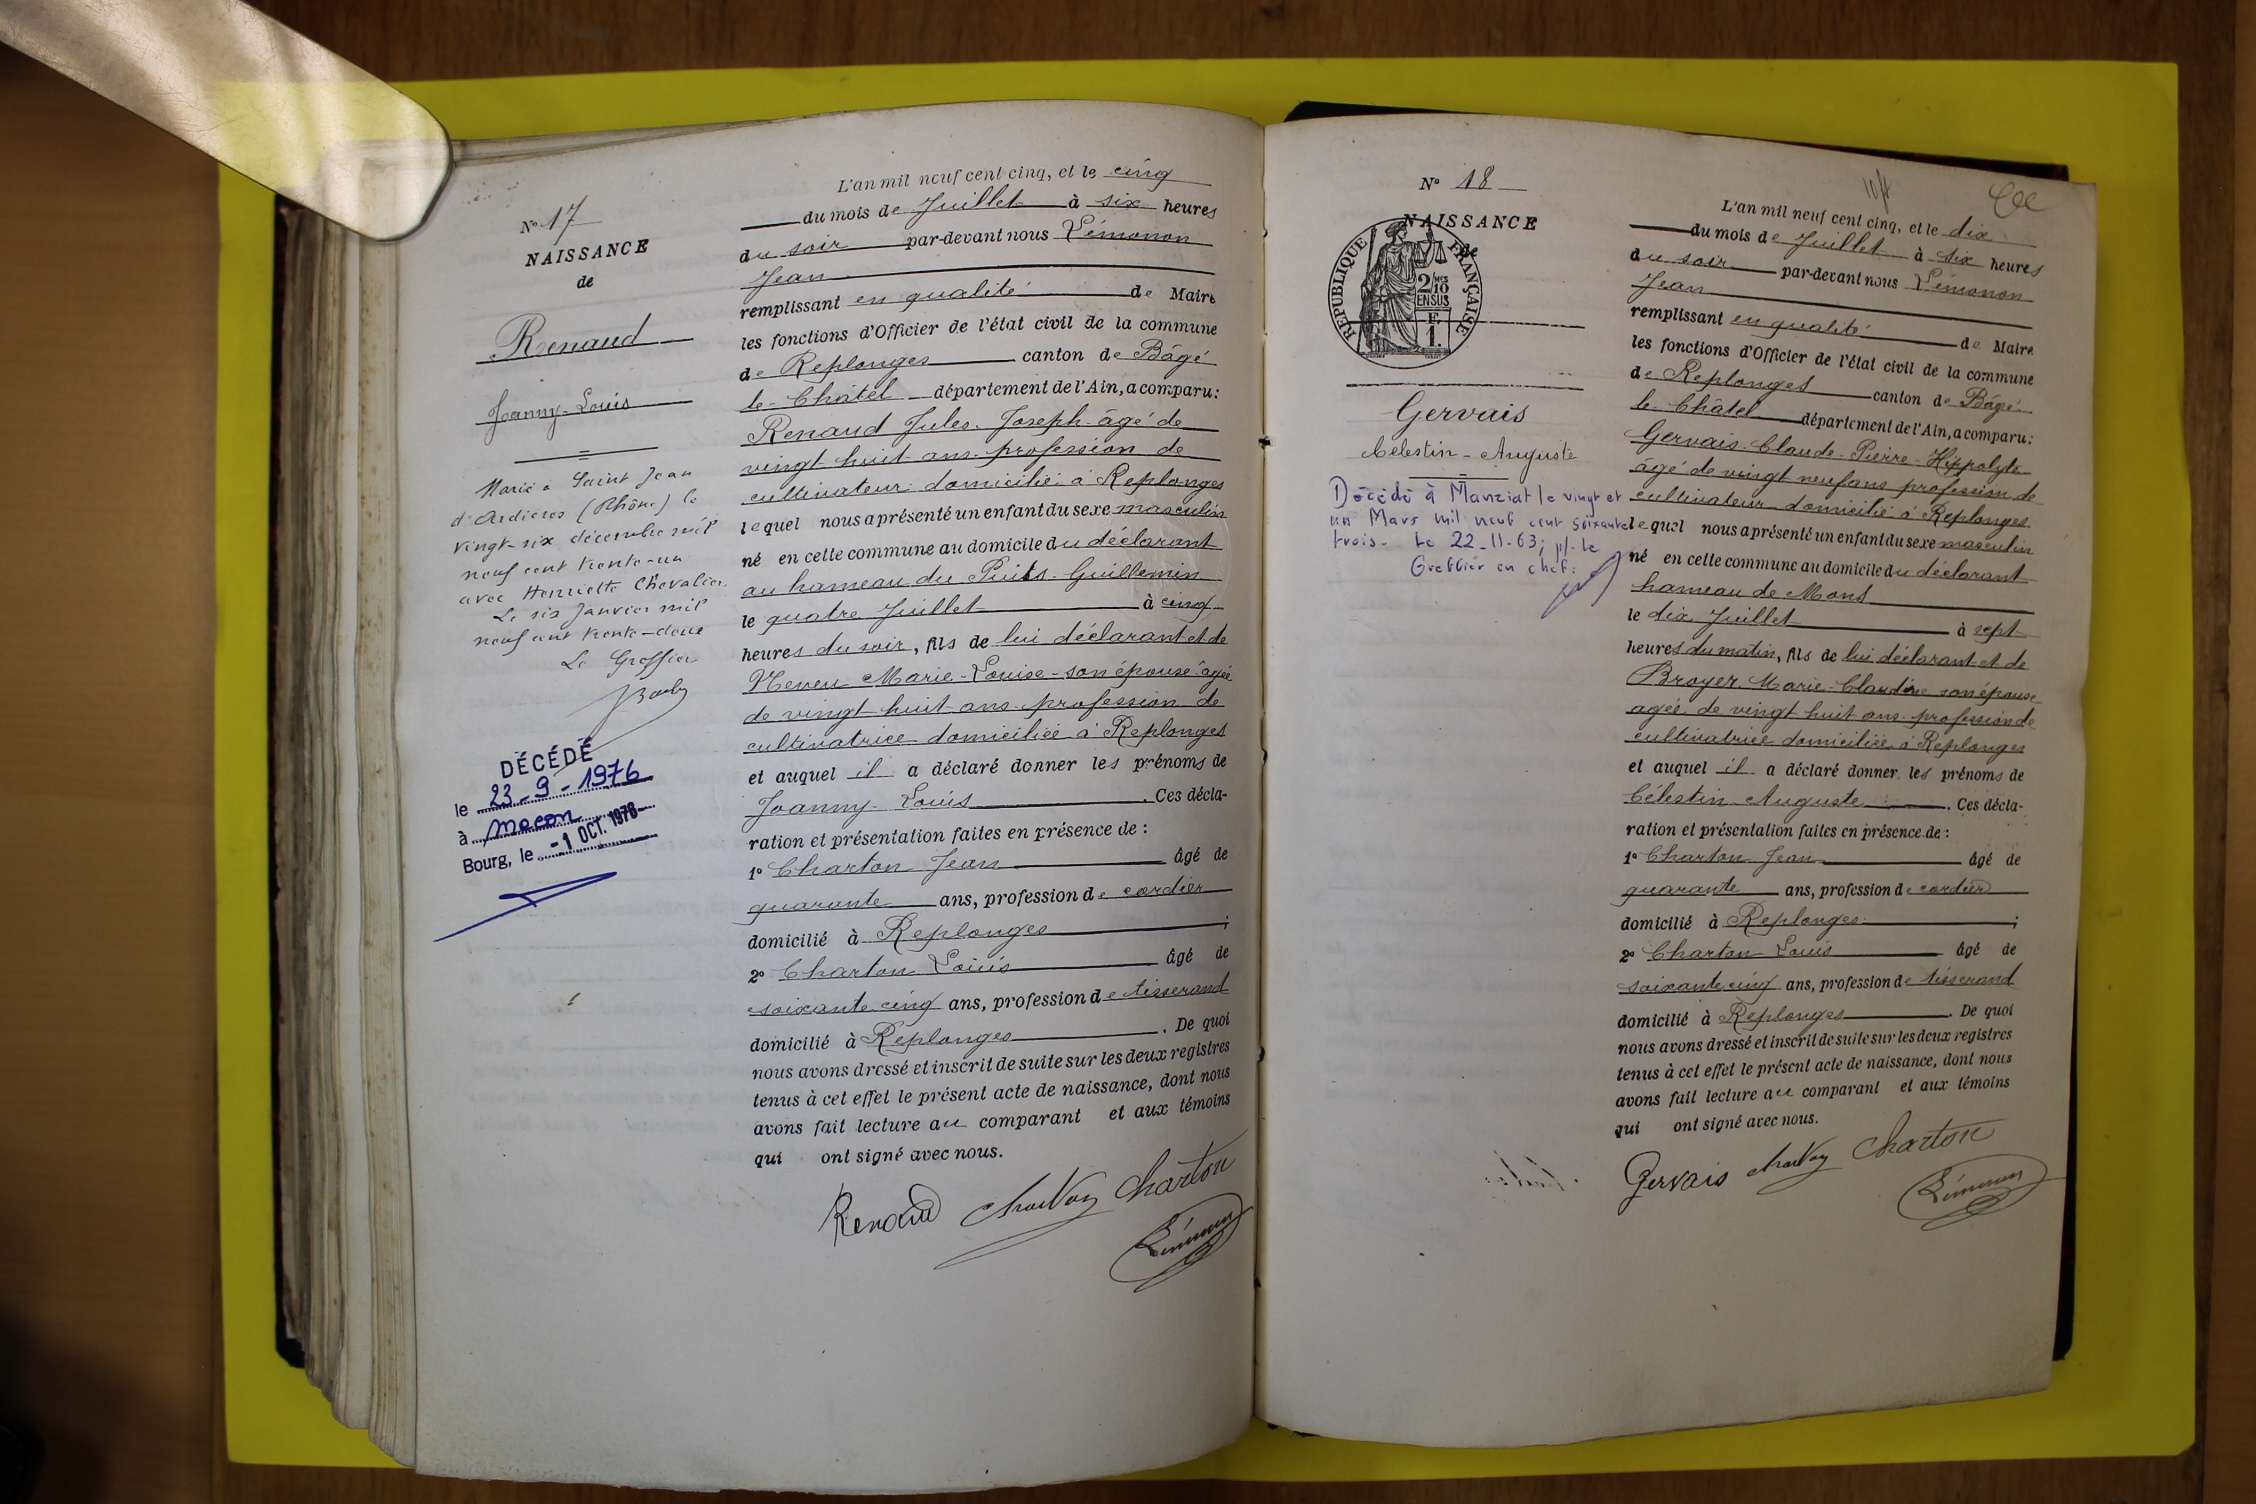 N° 17
NAISSANCE
de
Renaud
Joanny-Louis
Marié à Saint Jean
d'Ardières (Rhône) le
vingt-six décembre mil
neuf cent trente-un
avec Henriette Chevalier.
Le six Janvier mil
neuf cent trente-deux
Le Greffier
DÉCÉDÉ
le 23-9-1976
à macon
Bourg, le -1 OCT. 1976
L'an mil neuf cent cinq, et le cinq
du mois de Juillet à six heures
du soir par-devant nous Lémonon
Jean
remplissant en qualité de Maire
les fonctions d'Officier de l'état civil de la commune
de Replonges canton de Bâgé
le Châtel département de l'Ain, a comparu:
Renaud Jules Joseph âgé de
vingt huit ans profession de
cultivateur domicilié à Replonges
lequel nous a présenté un enfant du sexe masculin
né en cette commune au domicile du déclarant
au hameau du Puits Guillemin
le quatre Juillet à cinq
heures du soir, fils de lui déclarant et de
Neveu Marie-Louise son épouse âgée
de vingt huit ans profession de
cultivatrice domiciliée à Replonges
et auquel il a déclaré donner les prénoms de
Joanny-Louis. Ces décla-
ration et présentation faites en présence de :
1° Charton Jean âgé de
quarante ans, profession de cordier
domicilié à Replonges ;
2° Charton Louis âgé de
soixante cinq ans, profession de tisserand
domicilié à Replonges. De quoi
nous avons dressé et inscrit de suite sur les deux registres
tenus à cet effet le présent acte de naissance, dont nous
avons fait lecture au comparant et aux témoins
qui ont signé avec nous.
Renaud Charton Charton
Lémonon
N° 18
NAISSANCE
de
RÉPUBLIQUE FRANÇAISE
2/10
EN SUS
F.
1.
Gervais
Célestin-Auguste
Décédé à Manziat le vingt et
un Mars mil neuf cent soixante
trois. Le 22-11-63; p/ Le
Greffier en chef:
L'an mil neuf cent cinq, et le dix
du mois de Juillet à six heures
du soir par-devant nous Lémonon
Jean
remplissant en qualité de Maire
les fonctions d'Officier de l'état civil de la commune
de Replonges canton de Bâgé
le Châtel département de l'Ain, a comparu:
Gervais Claude-Pierre-Hippolyte
âgé de vingt neuf ans profession de
cultivateur domicilié à Replonges
lequel nous a présenté un enfant du sexe masculin
né en cette commune au domicile du déclarant
hameau de Mons
le dix Juillet à sept
heures du matin, fils de lui déclarant et de
Broyer Marie-Claudine son épouse
agée de vingt huit ans profession de
cultivatrice domiciliée à Replonges
et auquel il a déclaré donner les prénoms de
Célestin Auguste. Ces décla-
ration et présentation faites en présence de :
1° Charton Jean âgé de
quarante ans, profession de cordier
domicilié à Replonges ;
2° Charton Louis âgé de
soixante cinq ans, profession de tisserand
domicilié à Replonges. De quoi
nous avons dressé et inscrit de suite sur les deux registres
tenus à cet effet le présent acte de naissance, dont nous
avons fait lecture au comparant et aux témoins
qui ont signé avec nous.
Gervais Charton Charton
Lémonon